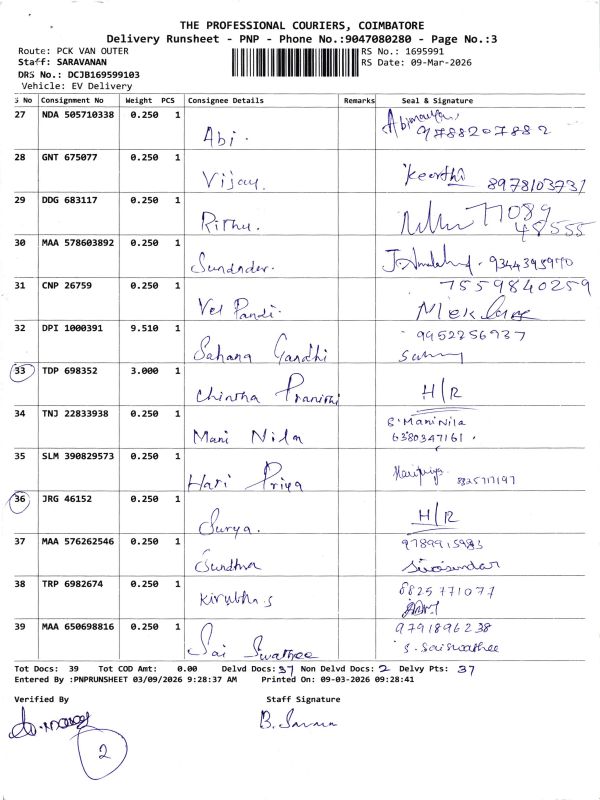 THE PROFESSIONAL COURIERS, COIMBATORE
Delivery Runsheet - PNP - Phone No.:9047080280 - Page No.:3
Route: PCK VAN OUTER RS No.: 1695991
Staff: SARAVANAN RS Date: 09-Mar-2026
DRS No.: DCJB169599103
Vehicle: EV Delivery
S No Consignment No Weight PCS Consignee Details Remarks Seal & Signature
27 NDA 505710338 0.250 1 Abi.
9788207882
28 GNT 675077 0.250 1 Vijay. Keerthi 8978103731
29 DDG 683117 0.250 1 Rithu. 77089
48555
30 MAA 578603892 0.250 1 9344395970
31 CNP 26759 0.250 1 Vel Pandi. 7559840259
32 DPI 1000391 9.510 1 Sahana Gandhi 9952256937
33 TDP 698352 3.000 1 H/R
34 TNJ 22833938 0.250 1 Mani Nila S. Mani Nila
6380347161.
35 SLM 390829573 0.250 1 Hari Priya Haripriya 8825717197
36 JRG 46152 0.250 1 Surya. H/R
37 MAA 576262546 0.250 1 9789915983
Sivasundar
38 TRP 6982674 0.250 1 Kirubha.S 8825771077
39 MAA 650698816 0.250 1 Sai Swathee 9791896238
S. Saiswathee
Tot Docs: 39 Tot COD Amt: 0.00 Delvd Docs: 37 Non Delvd Docs: 2 Delvy Pts: 37
Entered By :PNPRUNSHEET 03/09/2026 9:28:37 AM Printed On: 09-03-2026 09:28:41
Verified By Staff Signature
2